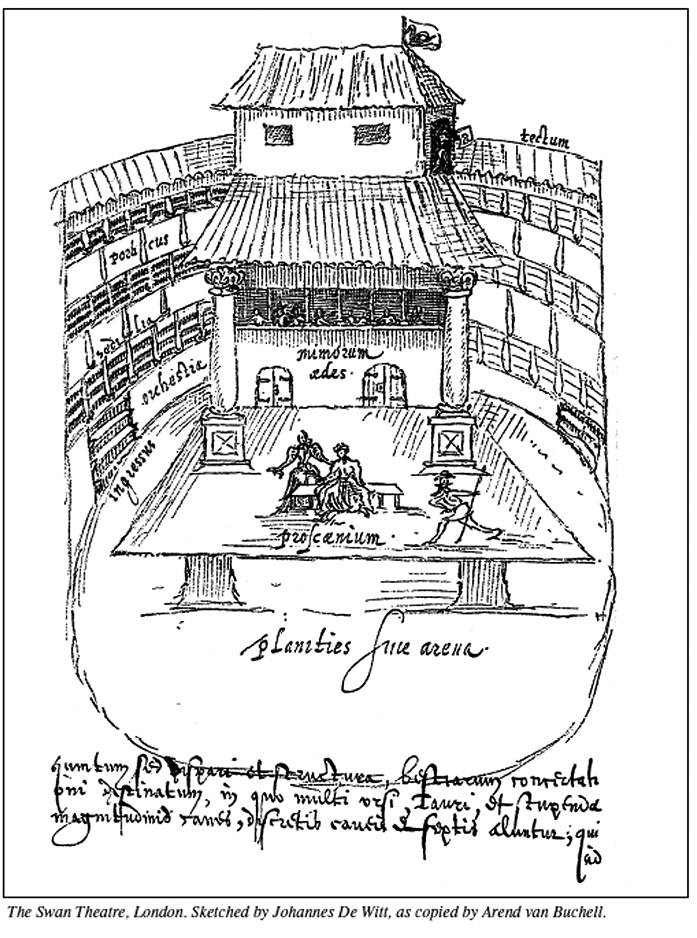 tectum
porticus
sedilia
orchestra
mimorum
ædes.
ingressus
proscænium.
planities siue arena.
quintum sed dispari et structura, bestiarum concertati
oni destinatum, in quo multi ursi, Tauri, et stupendæ
magnitudinis canes, discretis caueis et septis aluntur, qui
ad
The Swan Theatre, London. Sketched by Johannes De Witt, as copied by Arend van Buchell.